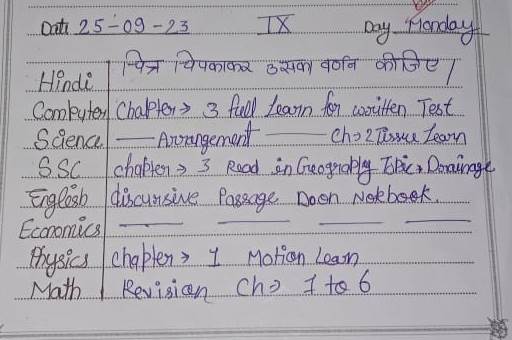 Date 25-09-23 IX Day Monday
Hindi चित्र चिपकाकर उसका वर्णन कीजिए।
Computer Chapter → 3 full Learn for written Test
Science — Arrangement — Ch→2 Tissue Learn
SSC chapter → 3 Read in Geography Topic → Drainage
English discursive Passage Do on Notebook.
Economics — — — —
Physics chapter → 1 Motion Learn
Math Revision Ch→ 1 to 6